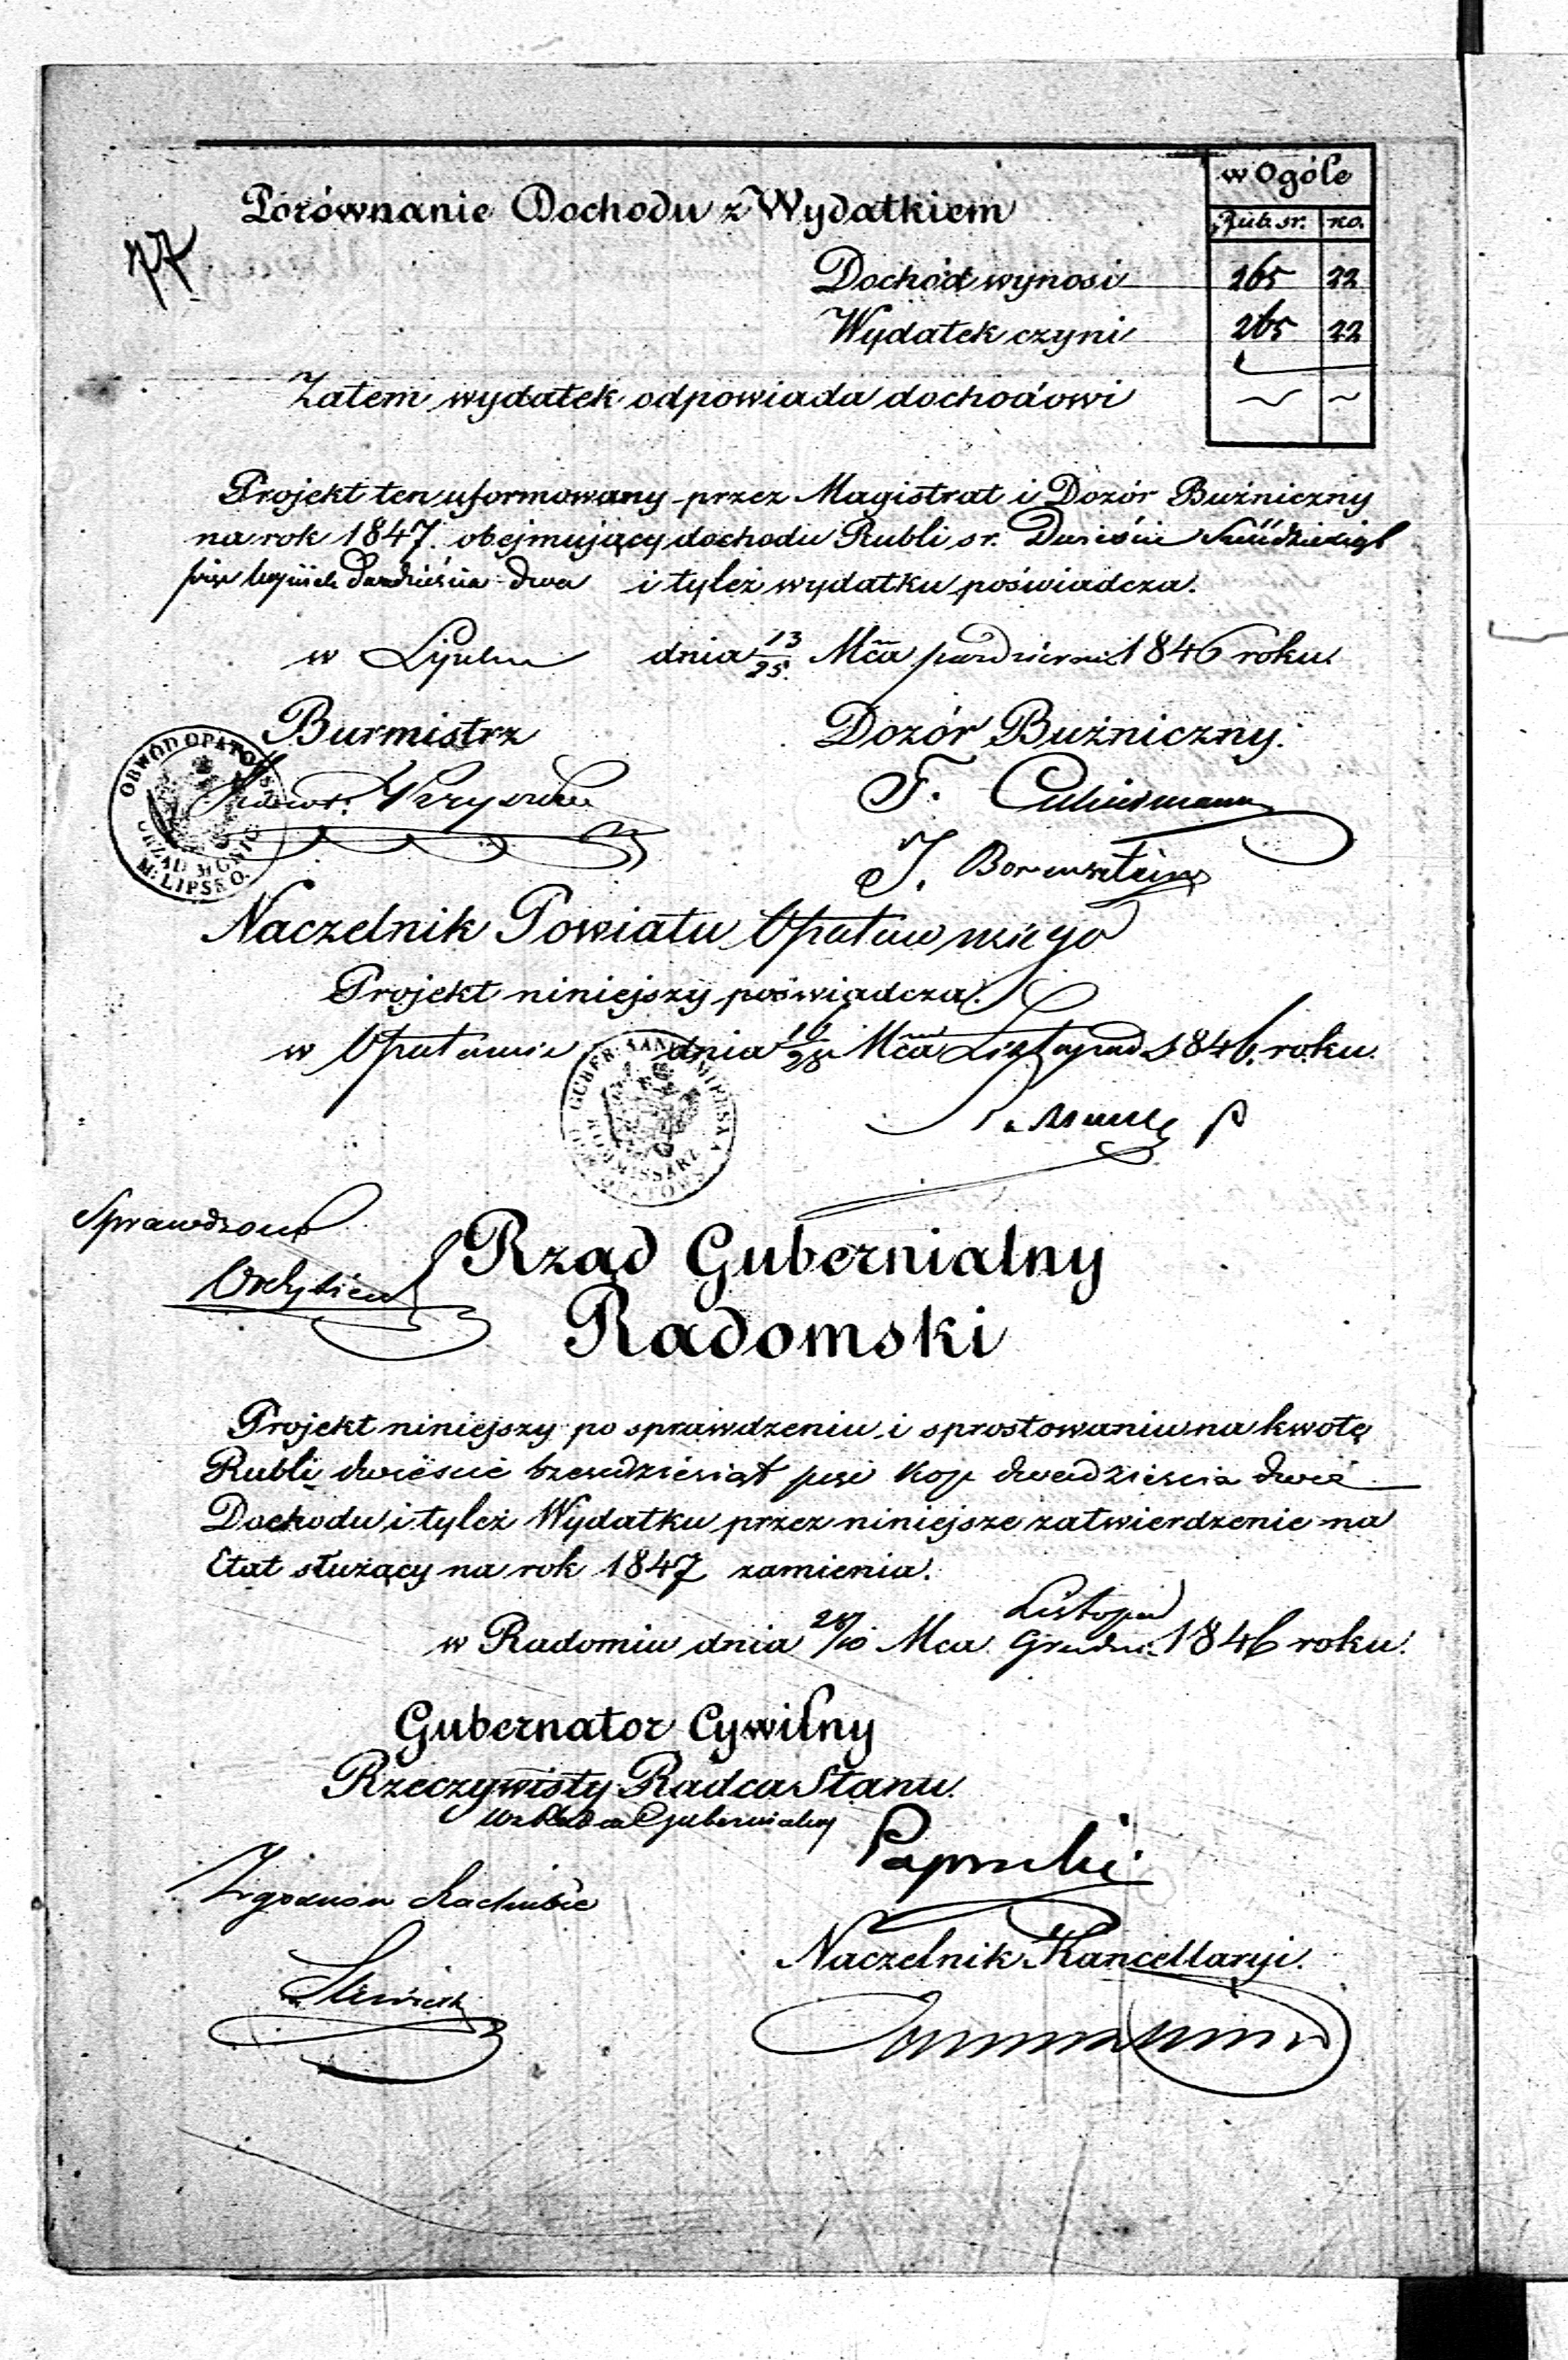 w Ogóle
Porównanie Dochodu z Wydatkiem
Rub. sr. ko.
77
Dochód wynosi 265 22
Wydatek czyni 265 22
Zatem wydatek odpowiada dochodowi
Projekt ten uformowany przez Magistrat i Dozór Bużniczny
na rok 1847. obejmujący dochodu Rubli sr. Dwieście Sześćdziesiąt
pięć kopiiek Dwadzieścia dwa i tyleż wydatku poświadcza.
w Lipsku dnia 13/25 Mca październ 1846 roku.
Burmistrz Dozór Bużniczny.
OBWÓD OPATOWS
URZĄD MUNIC
M: LIPSKO.
F. Cukiermann
J. Borensztein
Naczelnik Powiatu Opatowskiego
Projekt niniejszy poświadcza.
w Opatowie dnia 16/28 Mca Listopad 1846. roku.
GUBER: SANDOMIERSKA
KOMMISSARZ
OPATOWS
Sprawdzono
Rząd Gubernialny
Radomski
Projekt niniejszy po sprawdzeniu i sprostowaniu na kwotę
Rubli dwieście sześćdziesiąt pięć kop dwadzieścia dwie
Dochodu i tyleż Wydatku przez niniejsze zatwierdzenie na
Etat służący na rok 1847 zamienia.
w Radomiu dnia 28/10 Mca Listopad Grudni 1846 roku.
Gubernator Cywilny
Rzeczywisty Radca Stanu.
wz Radca Gubernialny
Paprocki
Zgodność Rachubie
Naczelnik Kancellaryi.